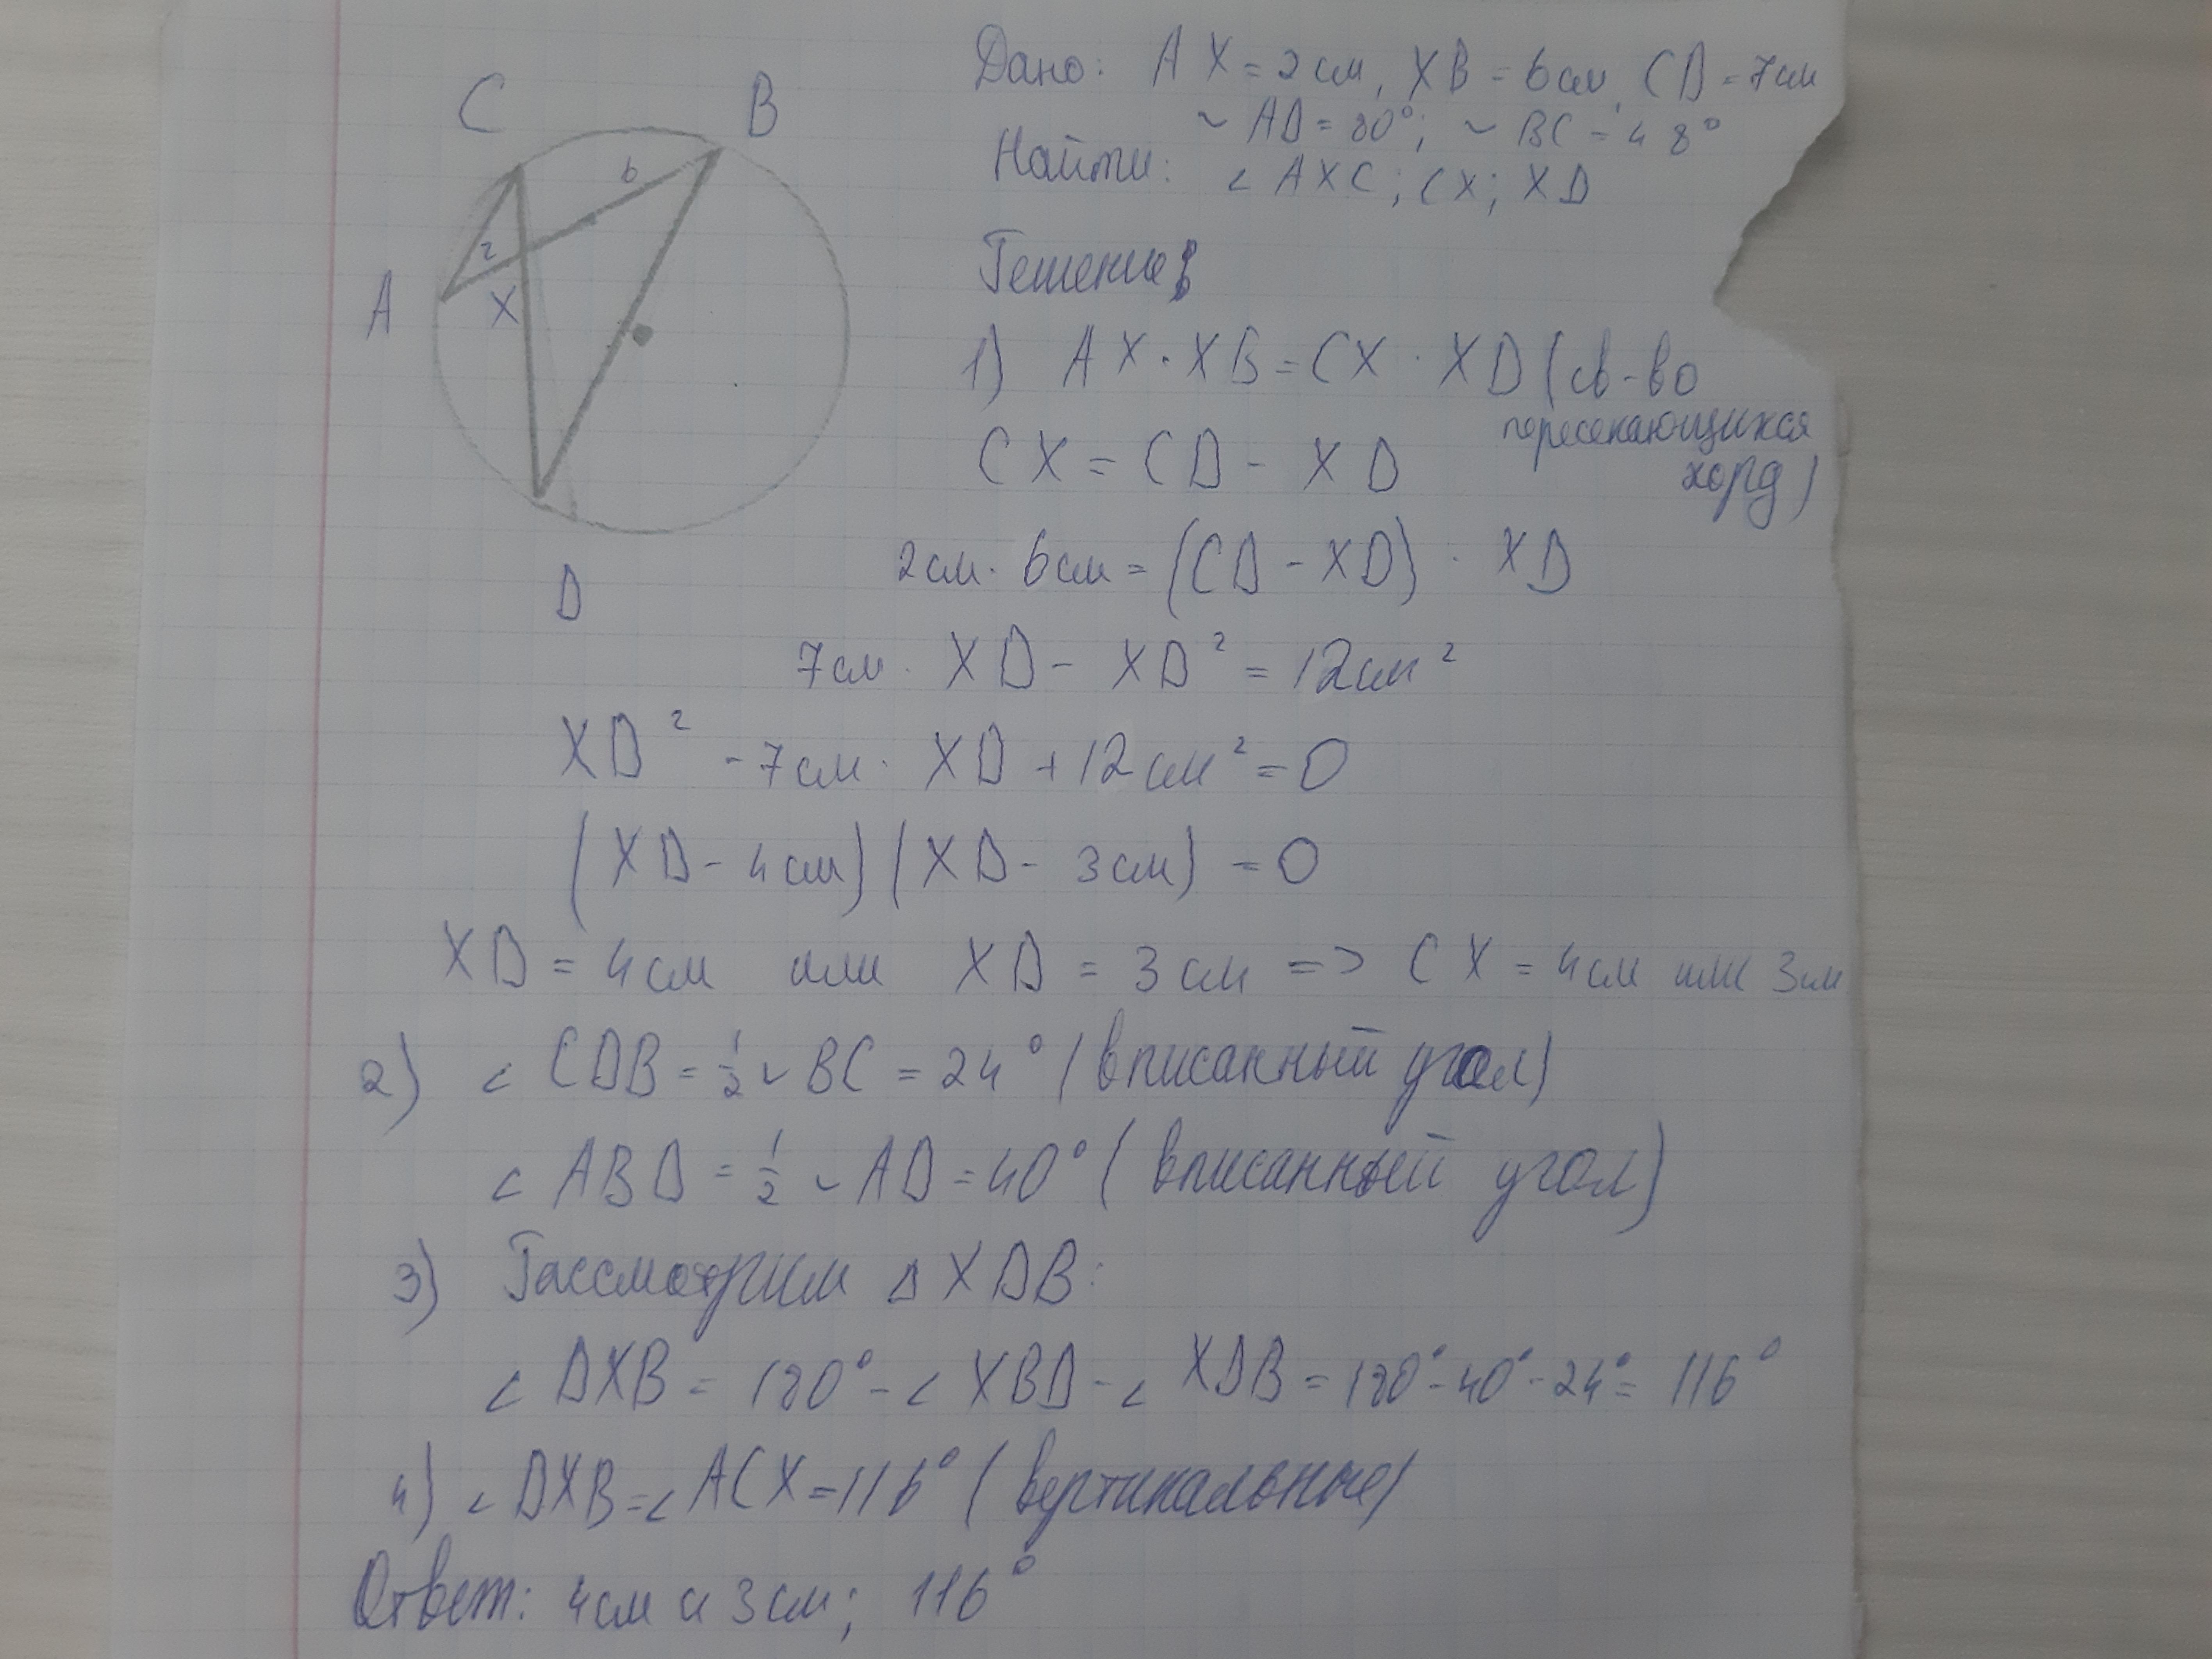 C
B
6
2
A
X
D
Дано: AX = 2 см, XB = 6 см, CD = 7 см
◡ AD = 80°; ◡ BC = 48°
Найти: ∠ AXC; CX; XD
Решение:
1) AX · XB = CX · XD (св-во
пересекающихся
хорд)
CX = CD - XD
2 см · 6 см = (CD - XD) · XD
7 см · XD - XD² = 12 см²
XD² - 7 см · XD + 12 см² = 0
(XD - 4 см) (XD - 3 см) = 0
XD = 4 см или XD = 3 см => CX = 4 см или 3 см
2) ∠ CDB = ½ ◡ BC = 24° (вписанный угол)
∠ ABD = ½ ◡ AD = 40° (вписанный угол)
3) Рассмотрим Δ XDB:
∠ DXB = 180° - ∠ XBD - ∠ XDB = 180° - 40° - 24° = 116°
4) ∠ DXB = ∠ ACX = 116° (вертикальные)
Ответ: 4 см и 3 см; 116°